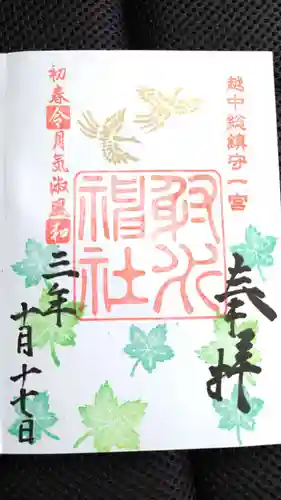 越中総鎮守一宮
奉拝
射水
神社
初春令月気淑風和
三年
十月十七日